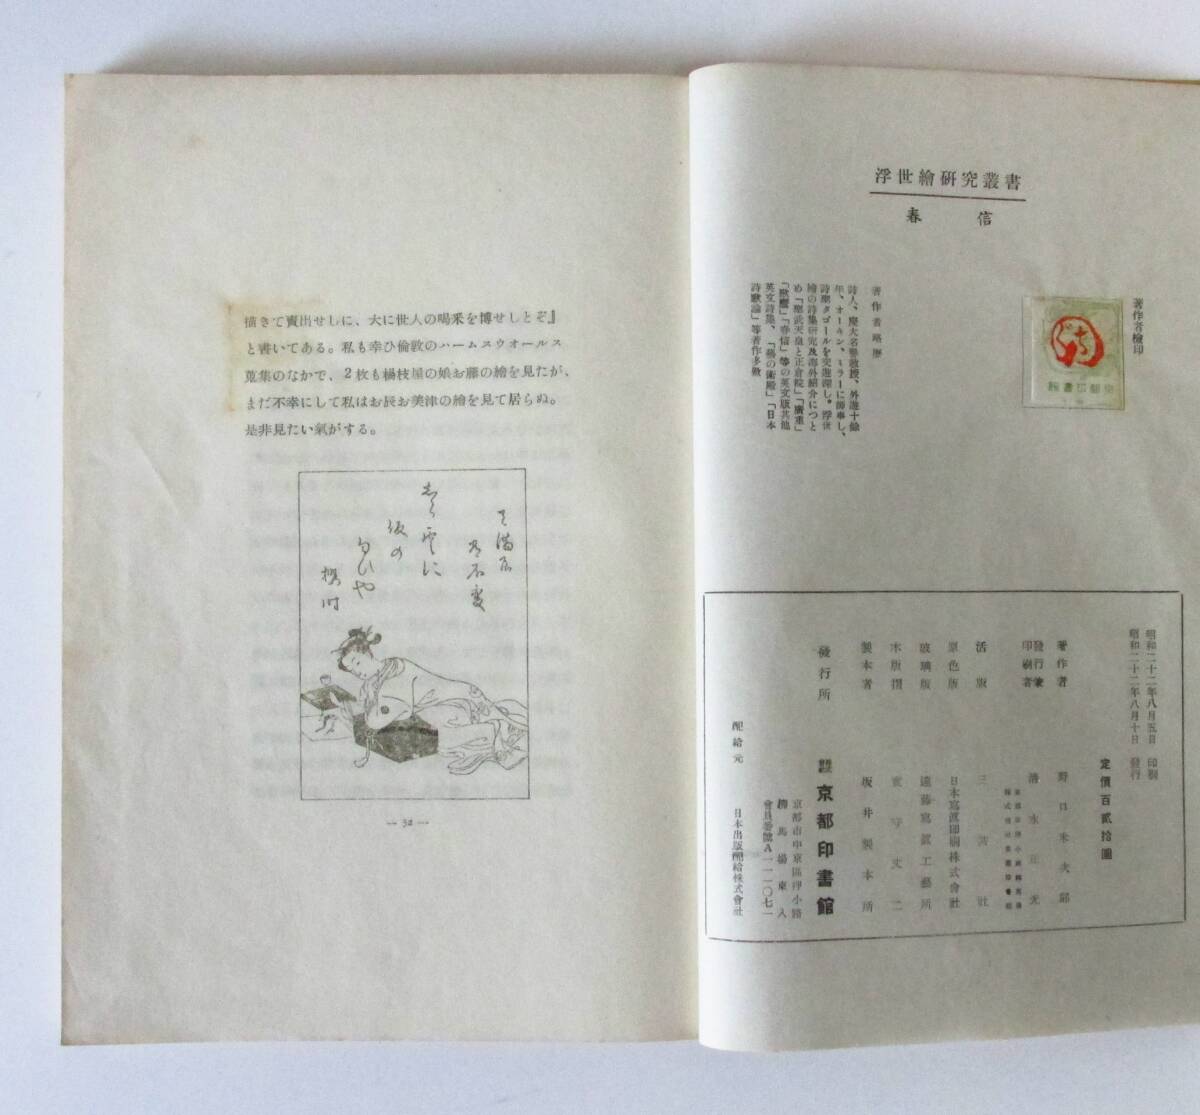 描きて賣出せしに、大に世人の喝釆を博せしとぞ』
と書いてある。私も幸ひ倫敦のハームスウオールス
蒐集のなかで、2枚も楊枝屋の娘お藤の繪を見たが、
まだ不幸にして私はお辰お美津の繪を見て居らぬ。
是非見たい氣がする。
— 32 —
浮世繪硏究叢書
春信
著作者檢印
著作者略歷
詩人、慶大名譽教授、外遊十餘
年、オーキン、ミラーに師事し、
詩聖タゴールを交遊深し。浮世
繪の詩集研究及海外紹介につと
め「聖武天皇と正倉院」「廣重」
「歌麿」「春信」等の英文版其他
英文詩集、「藝の術殿」「日本
詩歌論」等著作多數
昭和二十二年八月五日 印刷
昭和二十二年八月十日 發行
定價百貳拾圓
著作者 野口米次郎
發行兼印刷者 清水正光
活版 三濟社
原色版 日本寫眞印刷株式會社
玻璃版 遠藤寫眞工藝所
木版摺 守文二
製本者 坂井製本所
發行所 京都印書館
京都市中京區押小路
柳馬場東入
會員番號A一一一〇七一
配給元 日本出版配給株式會社